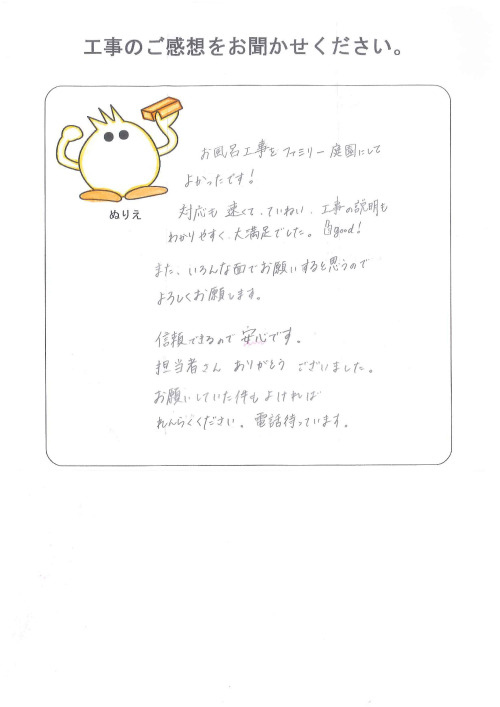 工事のご感想をお聞かせください。
ぬりえ
お風呂工事をファミリー庭園にして
よかったです!
対応も速くて、ていねい、工事の説明も
わかりやすく、大満足でした。good!
また、いろんな面でお願いすると思うので
よろしくお願します。
信頼できるので安心です。
担当者さん ありがとう ございました。
お願いしていた件もよければ
れんらくください。電話待っています。